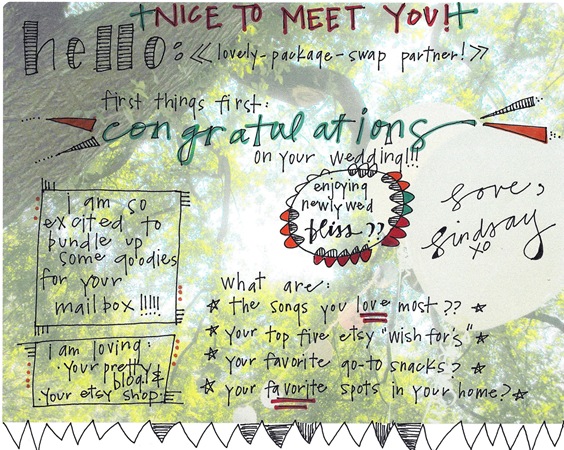 +NICE TO MEET YOU!+
hello: <<lovely-package-swap partner!>>
first things first:
congratulations
on your wedding!!!
enjoying
newlywed
bliss??
love,
lindsay
xo
i am so
excited to
bundle up
some goodies
for your
mailbox!!!!!
i am loving:
your pretty
blog! &
your etsy shop!
what are:
☆ the songs you love most?? ☆
☆ your top five etsy "wish for's" ☆
☆ your favorite go-to snacks? ☆
☆ your favorite spots in your home? ☆